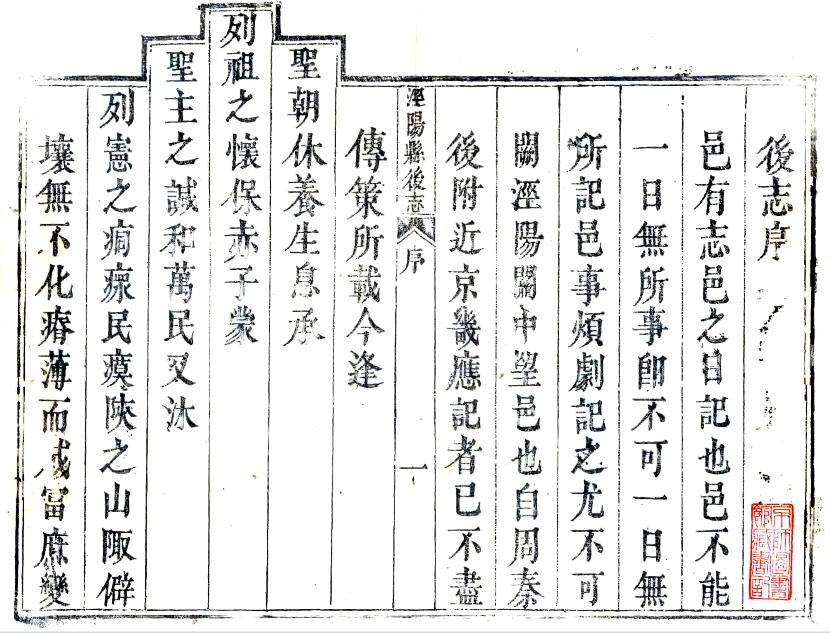 後志序
邑有志邑之日記也邑不能
一日無所事即不可一日無
所記邑事煩劇記之尤不可
闕涇陽關中望邑也自周秦
後附近京畿應記者已不盡
涇陽縣後志 序 一
傳策所載今逢
聖朝休養生息承
列祖之懷保赤子蒙
聖主之諴和萬民又沐
列憲之痌瘝民瘼陝之山陬僻
壤無不化瘠薄而成富庶變